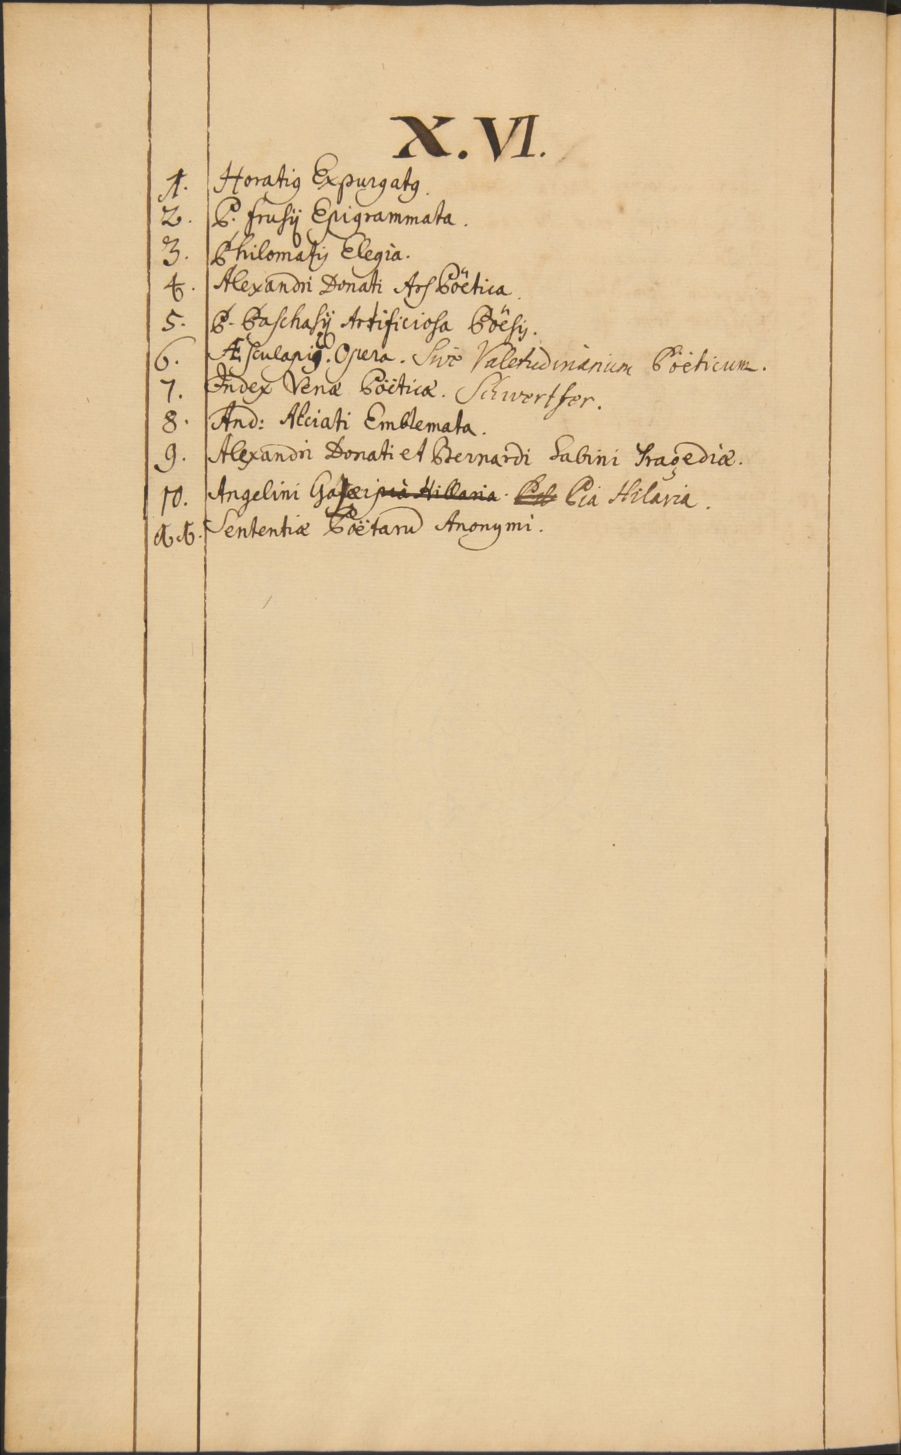 X.VI.
1. Horatiꝰ Expurgatꝰ.
2. P. frusij Epigrammata.
3. Philomasij Elegia.
4. Alexandri Donati Ars Poëtica.
5. P. Paschasij Artificiosa Poësij.
6. Æsculapiꝰ. Opera. Sive Valetudinarium Poëticum.
7. Index Venæ Poëticæ. Schwertfer.
8. And: Alciati Emblemata.
9. Alexandri Donati et Bernardi Sabini Tragediæ.
10. Angelini Gasæi pia Hillaria. Pia Hilaria.
11. Sententiæ Poëtarū Anonymi.